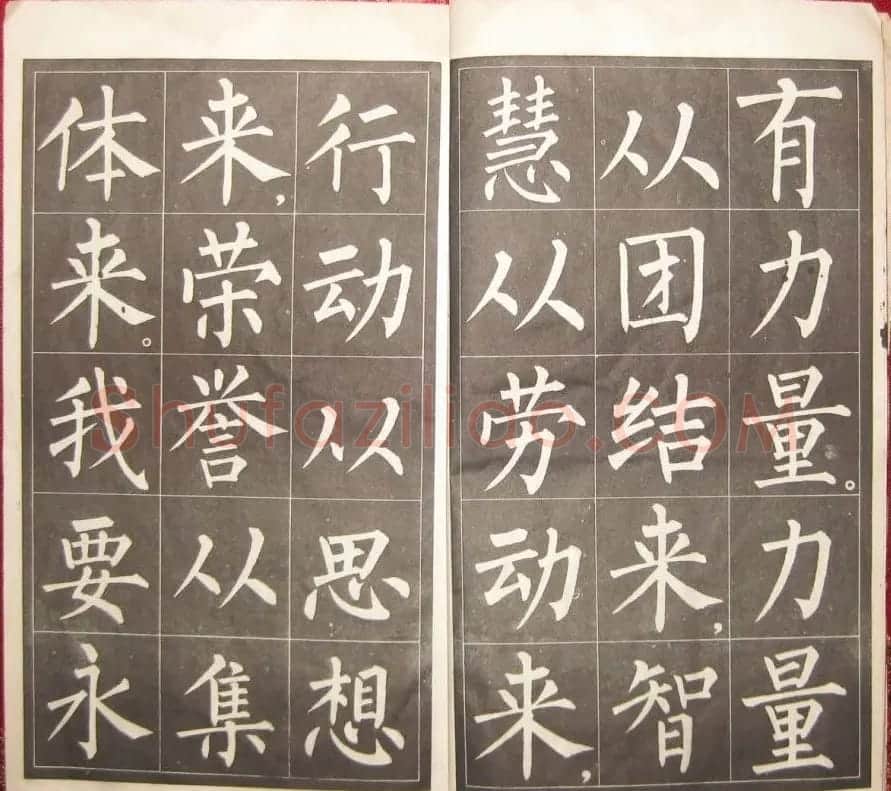 有力量。力量
从团结来，智
慧从劳动来，
行动从思想
来，荣誉从集
体来。我要永
Shufaziliao.COM